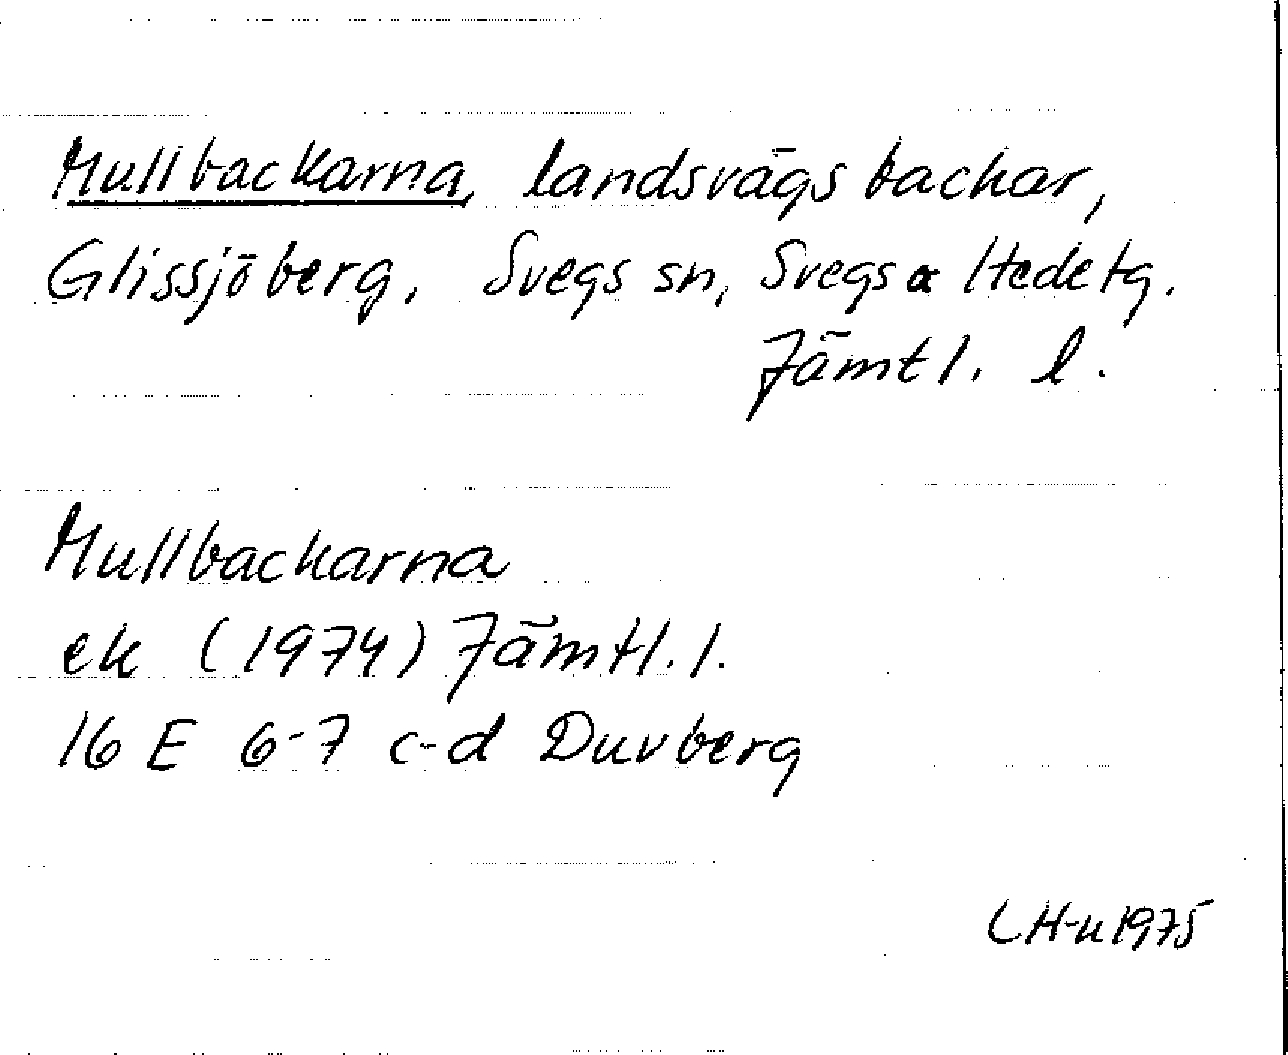 Mullbackarna, landsvägsbackar,
Glissjöberg, Svegs sn, Svegs & Hede tg.
Jämtl. l.
Mullbackarna
ek (1974) Jämtl. l.
16 E 6-7 c-d Duvberg
LH-n 1975